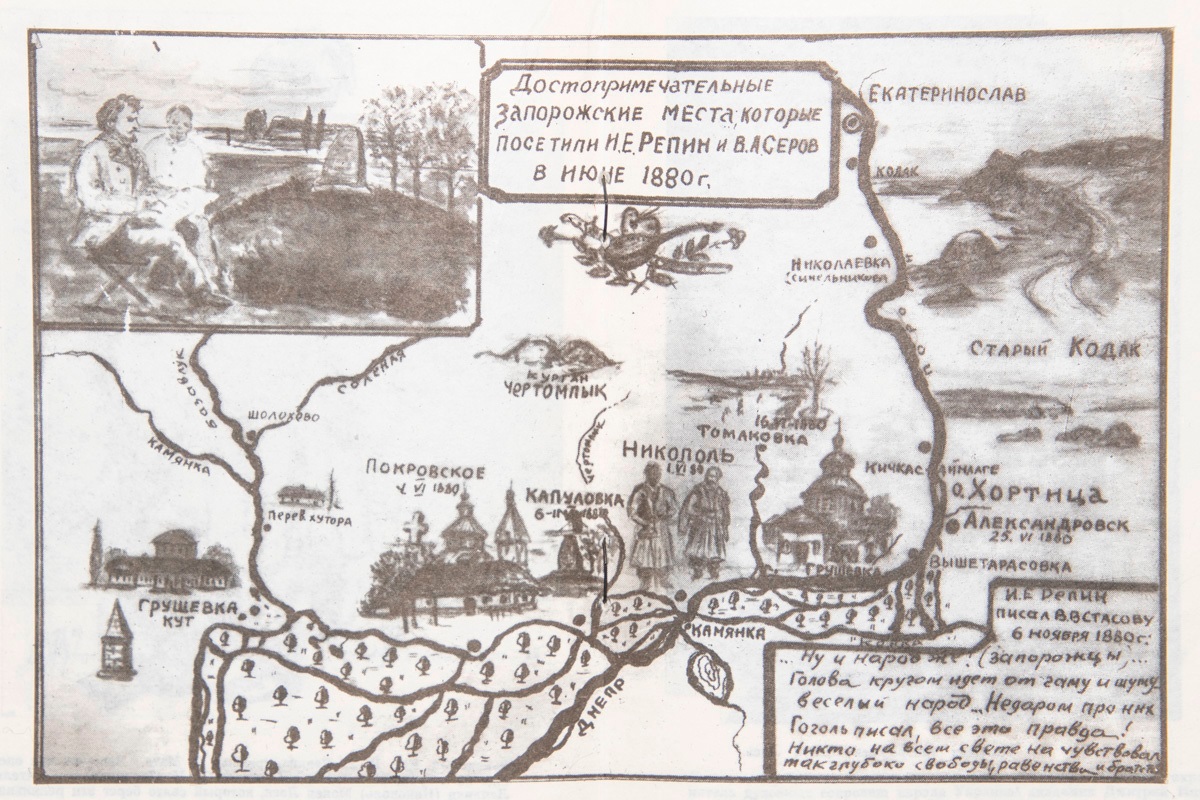 Достопримечательные
Запорожские места, которые
посетили И.Е.Репин и В.А.Серов
в июне 1880 г.
Екатеринослав
Кодак
Николаевка
Синельникова
Старый Кодак
Базавлук
Соленая
Шолохово
Камянка
Курган
Чертомлык
Томаковка
Никополь
Покровское
VI 1880
Капуловка
Перев хутора
Кичкас
о. Хортица
Александровск
25. VI 1880
Вышетарасовка
Грушевка
Кут
Грушевка
Камянка
Днепр
И.Е Репин
писал В.В Стасову
6 ноября 1880г:
...Ну и народ же! (запорожцы)...
Голова кругом идет от гаму и шуму
веселый народ... Недаром про них
Гоголь писал, все это правда!
Никто на всем свете на чувствовал
так глубоко свободы, равенства и братства